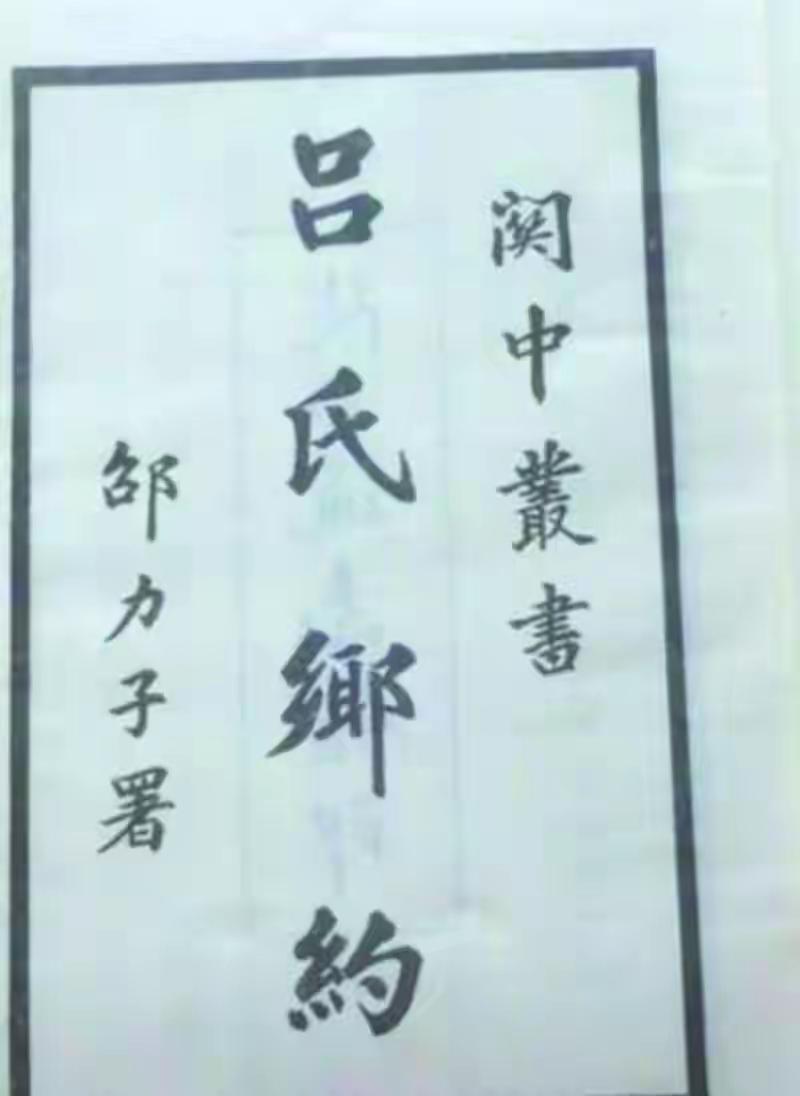 関中叢書
呂氏鄉約
邵力子署